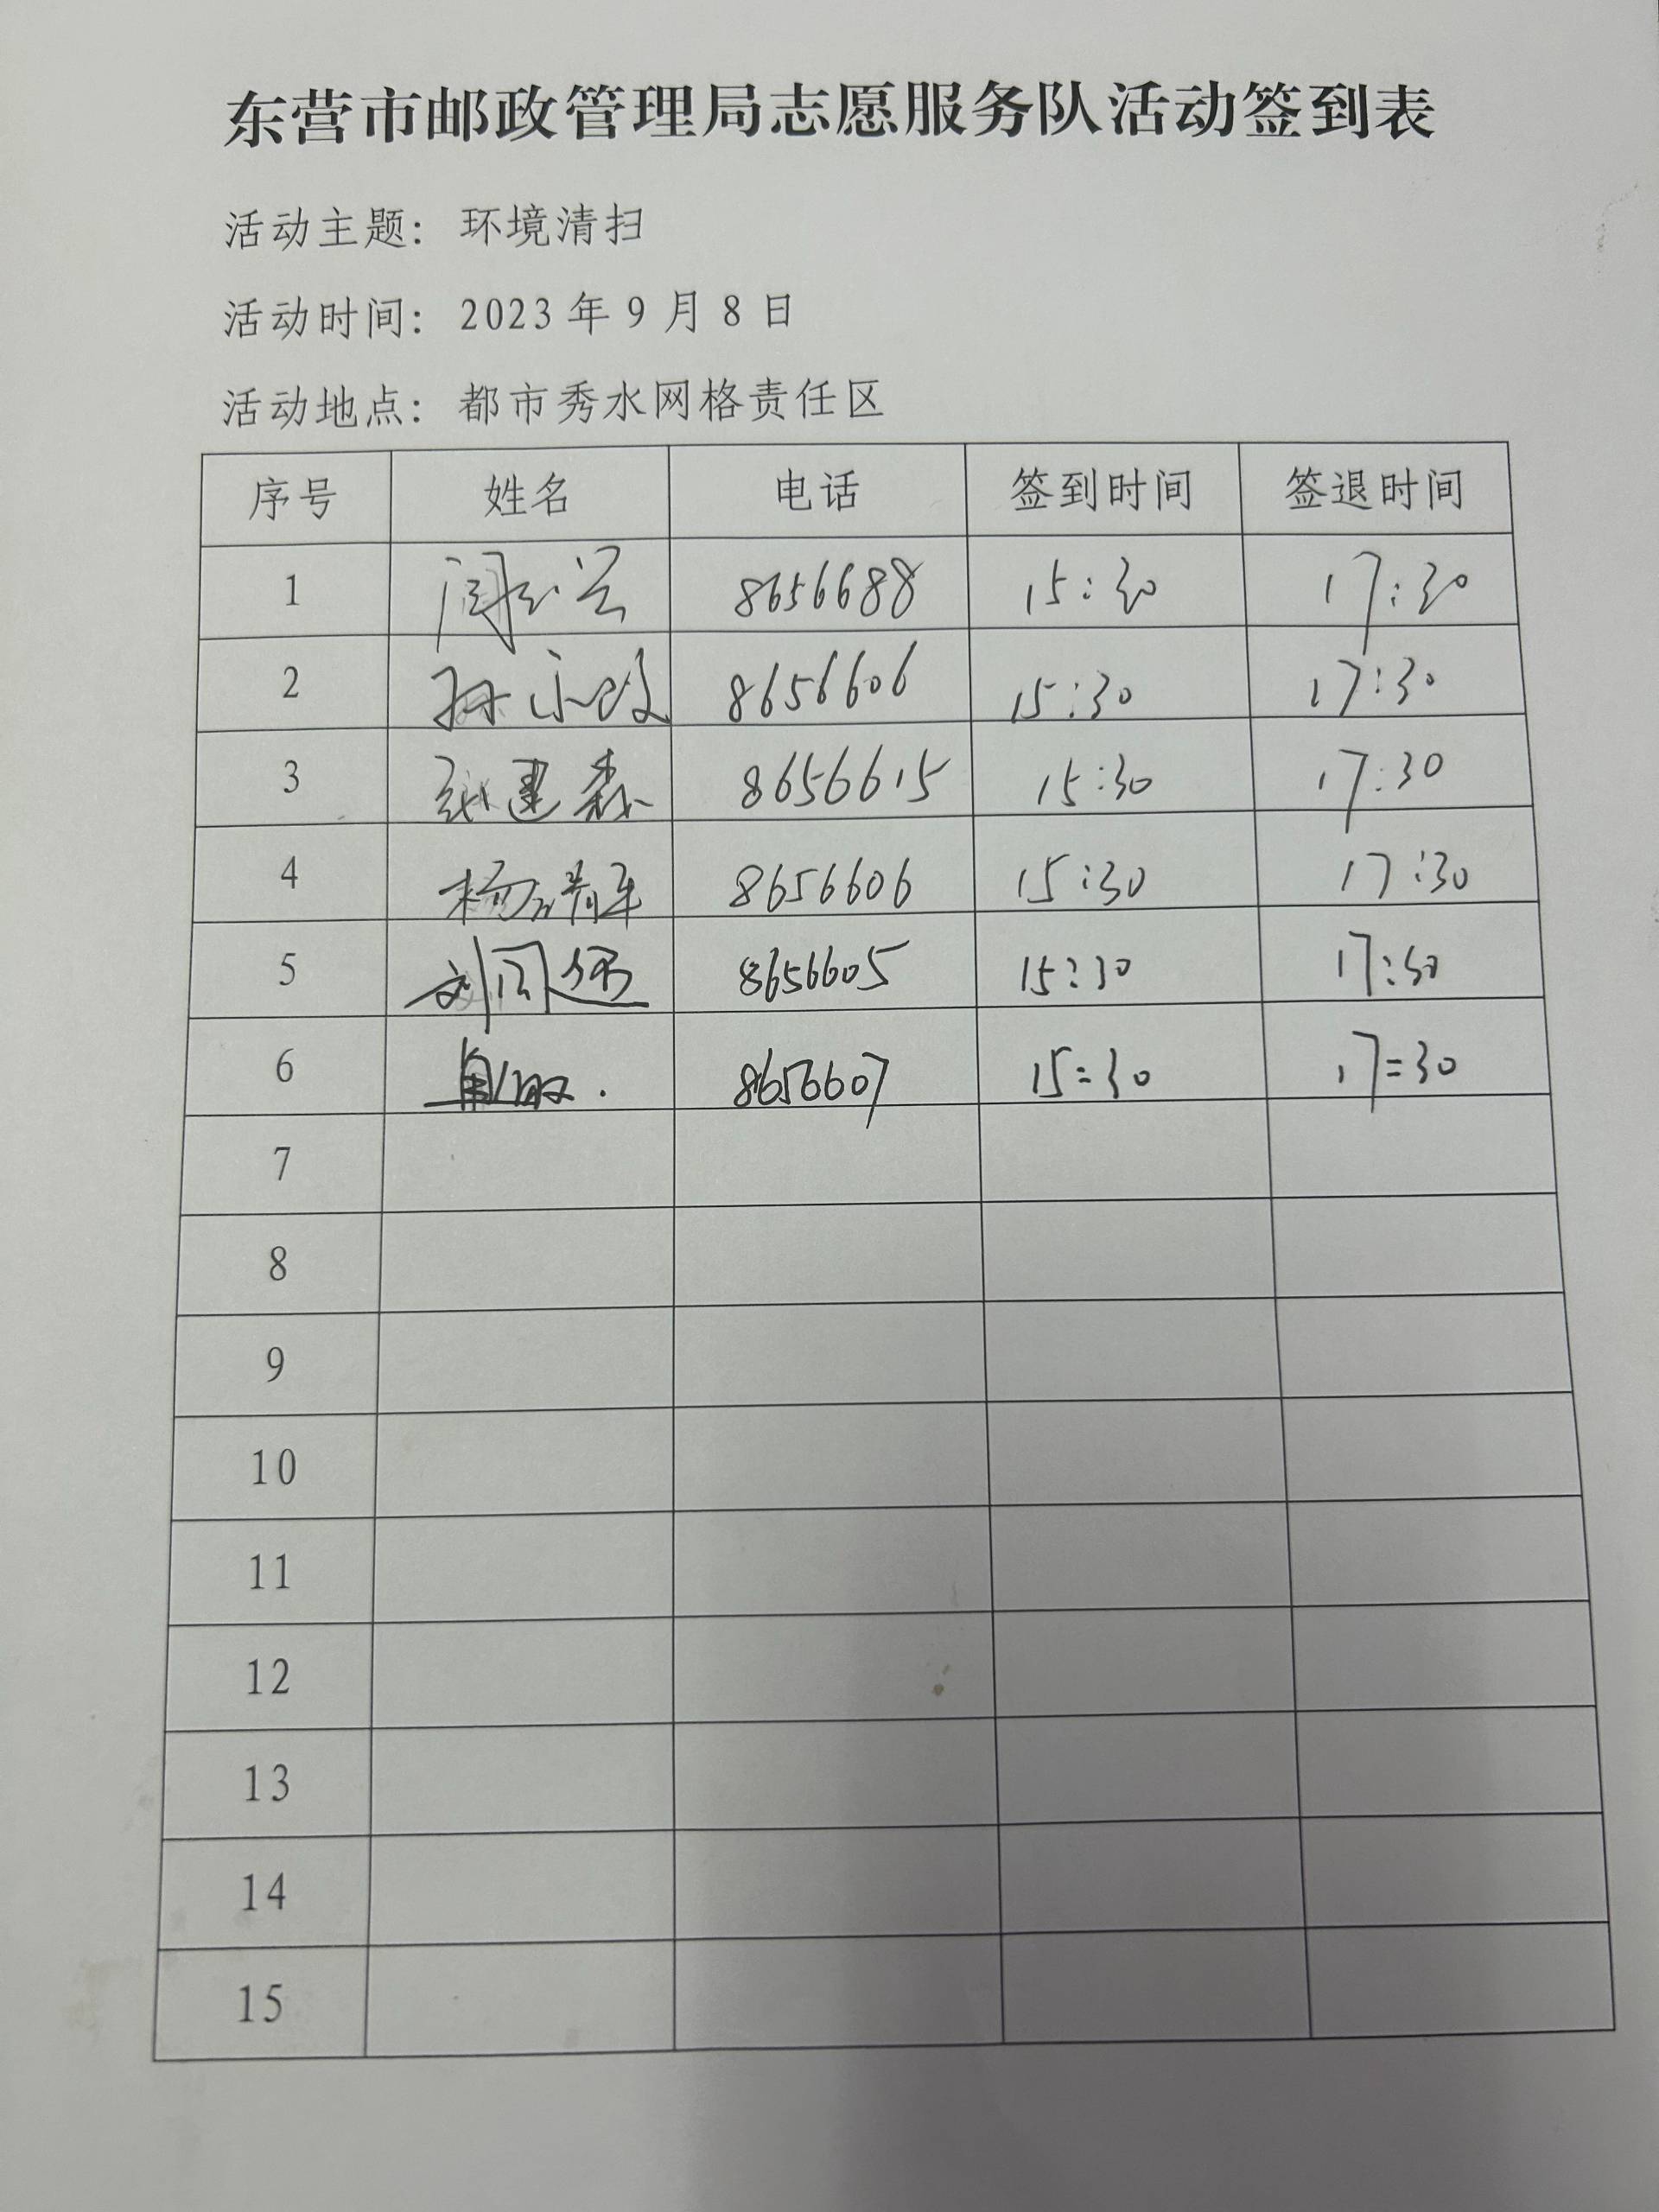 东营市邮政管理局志愿服务队活动签到表
活动主题：环境清扫
活动时间：2023年9月8日
活动地点：都市秀水网格责任区
序号 姓名 电话 签到时间 签退时间
1 8656688 15:30 17:30
2 8656606 15:30 17:30
3 张建森 8656615 15:30 17:30
4 杨 8656606 15:30 17:30
5 刘 8656605 15:30 17:30
6 8656607 15:30 17:30
7
8
9
10
11
12
13
14
15